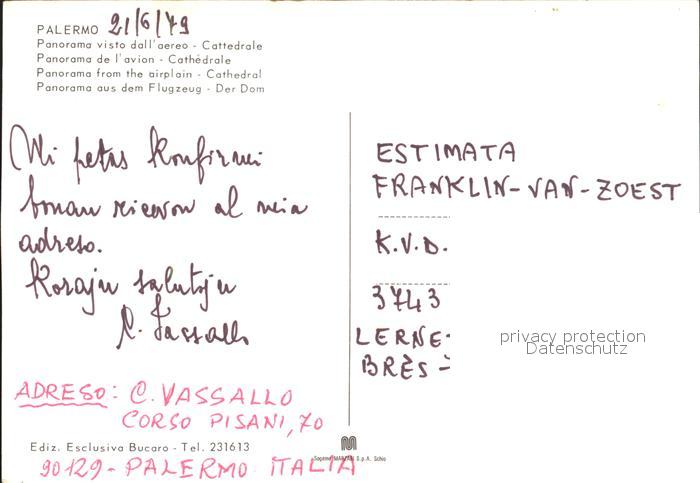 PALERMO 21/6/79
Panorama visto dall'aereo - Cattedrale
Panorama de l'avion - Cathédrale
Panorama from the airplain - Cathedral
Panorama aus dem Flugzeug - Der Dom
Mi petas konfirmi
bonan ricevon al mia
adreso.
Korajn salutojn
C. Vassallo
ADRESO: C. VASSALLO
CORSO PISANI, 70
Ediz. Esclusiva Bucaro - Tel. 231613
90129 - PALERMO ITALIA
ESTIMATA
FRANKLIN-VAN-ZOEST
K.V.D.
3743
LERNE-
BRÈS-
privacy protection
Datenschutz
S.p.A. Schio